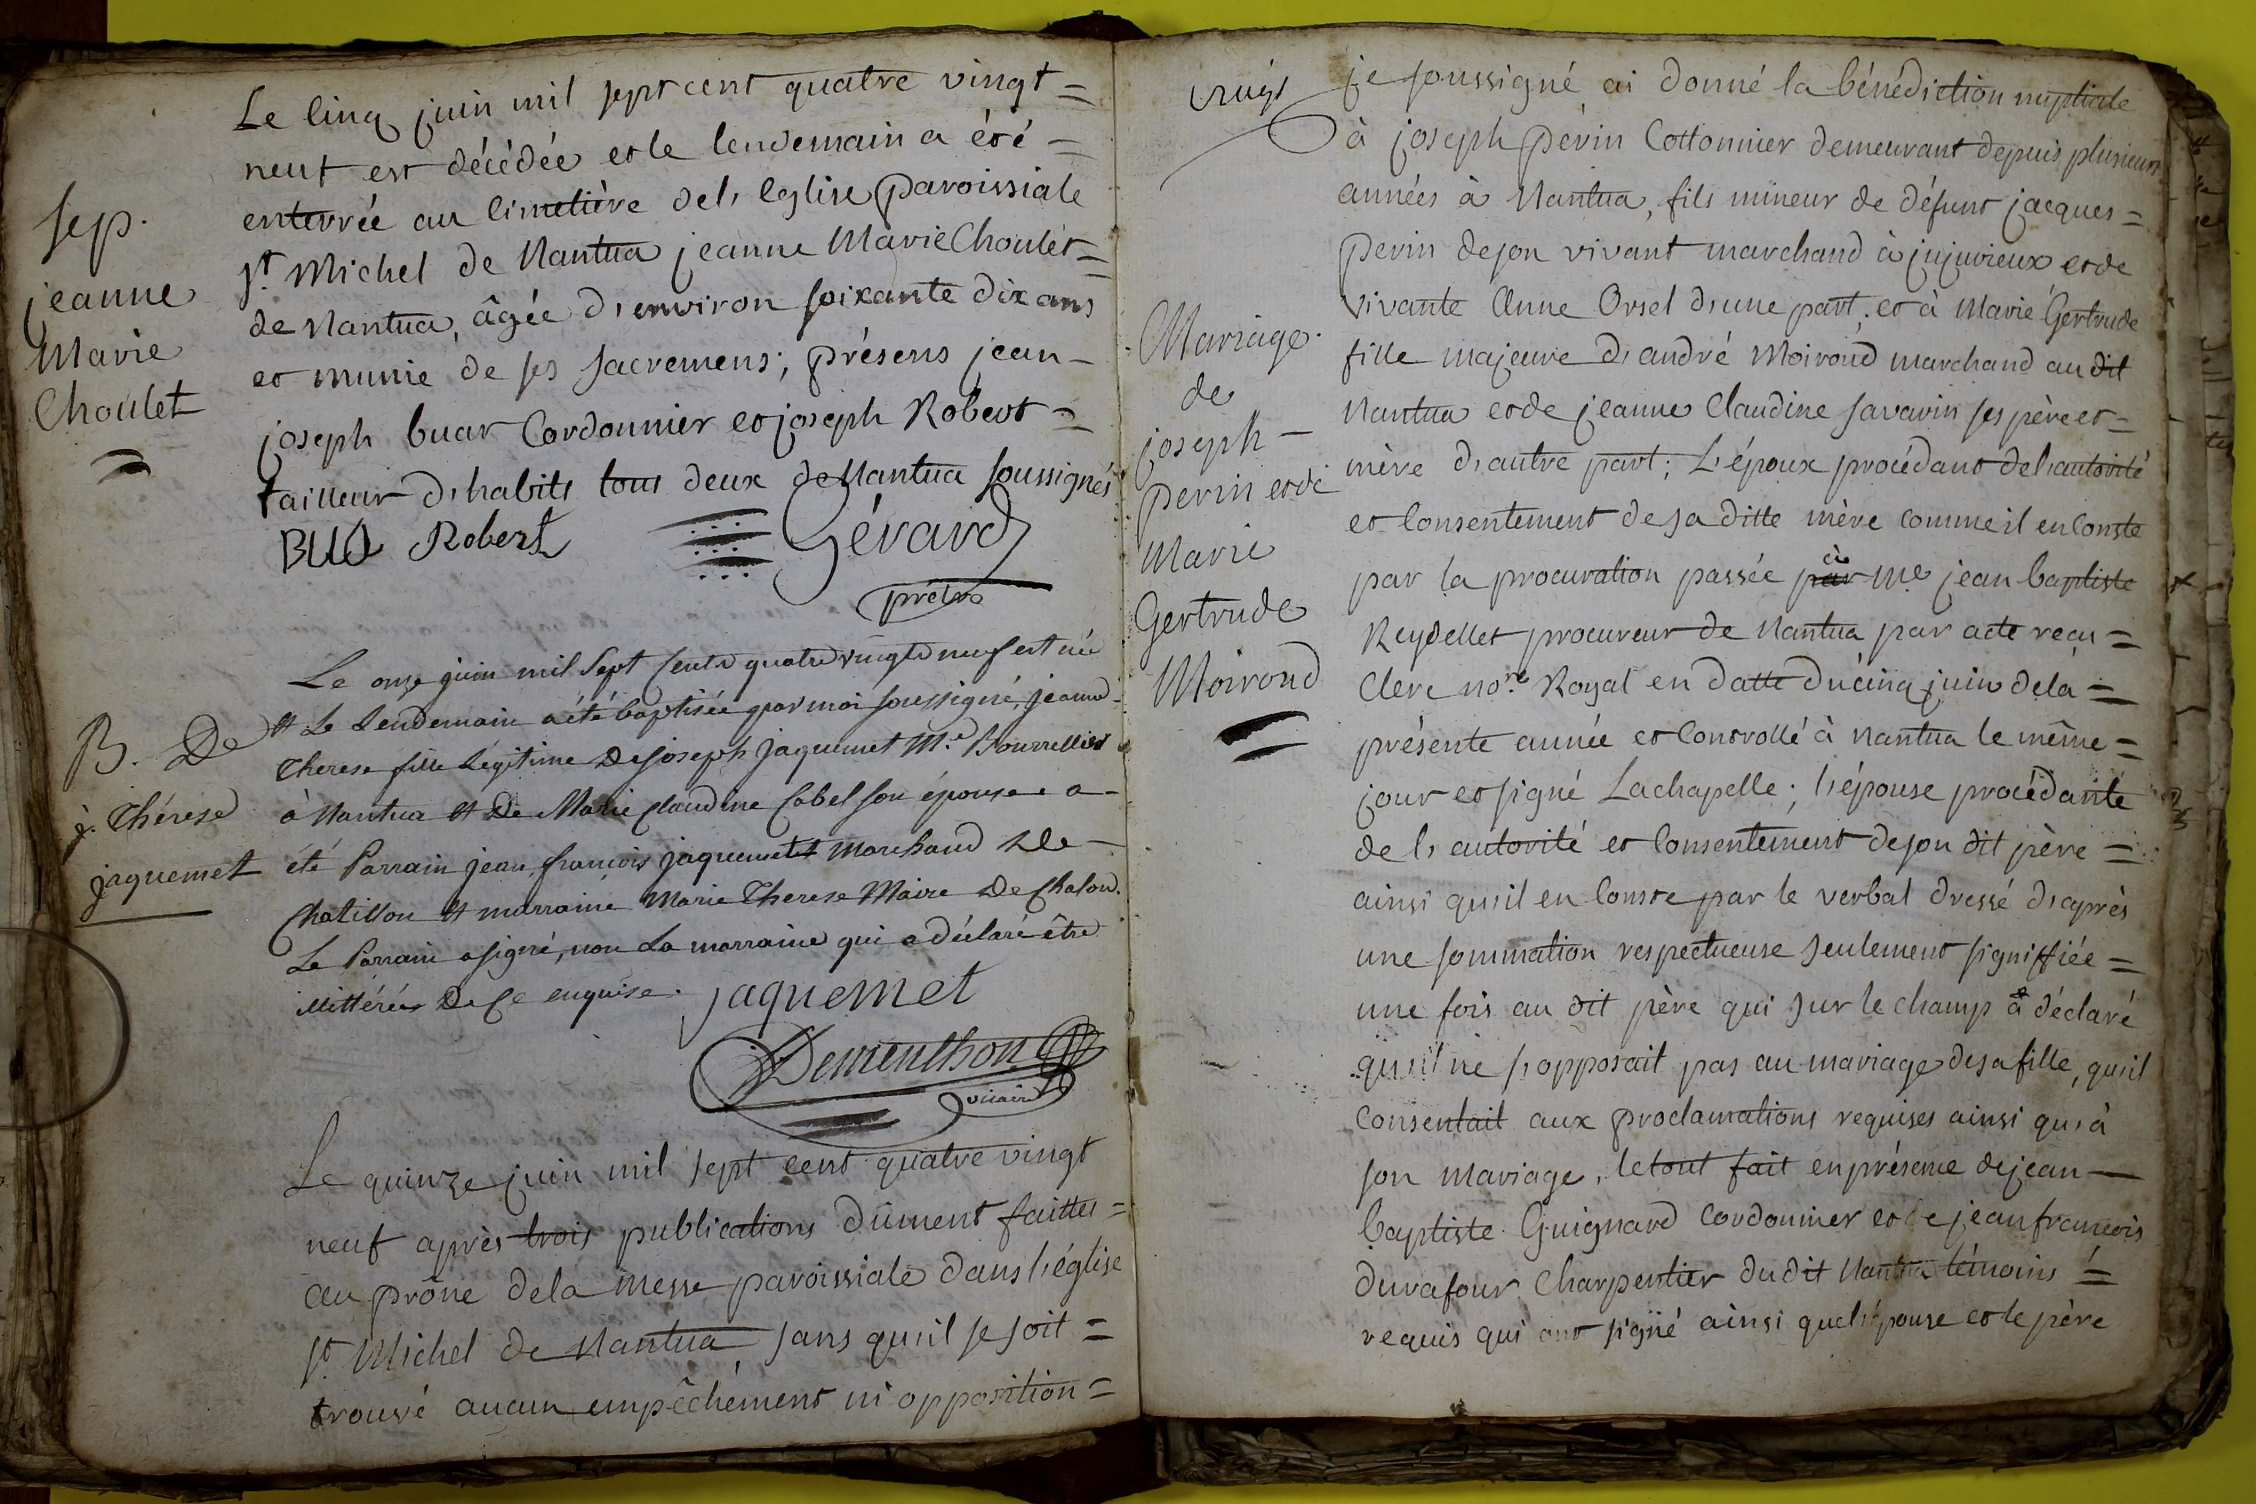 Le cinq juin mil sept cent quatre vingt =
neuf est décédée et le lendemain a été =
enterrée au cimetière de l'église paroissiale
St. Michel de Nantua jeanne Marie Choulet =
de Nantua, âgée d'environ soixante dix ans
et munie de ses sacremens; présens jean –
joseph buat Cordonnier et joseph Robert =
tailleur d'habits tous deux de Nantua soussignés
sep.
jeanne
Marie
Choulet
Robert
Gérard
prêtre
Le onze juin mil sept cents quatre vingts neuf est née
et Le Lendemain a été baptisée par moi soussigné, jeanne
Therese fille Légitime De joseph jaquemet Md. Bourrellier
à Nantua et De Marie Claudine Cabel son épouse a –
été Parrain jean françois jaquemet Marchand De –
Chatillon et marraine Marie Therese Maire De Chalon.
Le Parrain a signé, non La marraine qui a déclaré être
illittérée De ce enquise.
B. De
j. Thérese
jaquemet
jaquemet
Dementhon
vicaire
Le quinze juin mil sept cent quatre vingt
neuf après trois publications dûment faittes =
au prône de la messe paroissiale dans l'église
St. Michel de Nantua sans qu'il se soit =
trouvé aucun empêchement ni opposition =
Mariage
de
joseph –
perin et de
Marie
Gertrude
Moiroud
je soussigné ai donné la bénédiction nuptiale
à joseph perin Cottonnier demeurant depuis plusieurs
années à Nantua, fils mineur de défunt jacques =
perin de son vivant marchand à jujurieux et de
vivante Anne Orsel d'une part; et à Marie Gertrude
fille majeure d'andré Moiroud marchand au dit
Nantua et de jeanne Claudine savarin ses père et =
mère d'autre part; L'époux procédant de l'autorité
et consentement de sa ditte mère comme il en conste
par la procuration passée par à Me jean baptiste
Reydellet procureur de Nantua par acte reçu =
Clerc nore. Royal en datte du cinq juin de la =
présente année et controllé à Nantua le même =
jour et signé Lachapelle; l'épouse procédante
de l'autorité et consentement de son dit père =
ainsi qu'il en conste par le verbal dressé d'après
une sommation respectueuse seulement signiffiée =
une fois au dit père qui sur le champ a déclaré
qu'il ne s'opposait pas au mariage de sa fille, qu'il
consentait aux proclamations requises ainsi qu'à
son mariage, le tout fait en présence de jean –
baptiste Guignard cordonnier et de jean francois
durafour Charpentier du dit Nantua témoins =
requis qui ont signé ainsi que l'épouse et le père